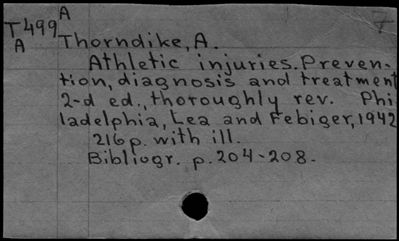 A
T499
A
Thorndike, A.
Athletic injuries. Preven-
tion, diagnosis and treatment
2-d ed., thoroughly rev. Phi
ladelphia, Lea and Febiger, 1942
216 p. with ill.
Bibliogr. p. 204-208.